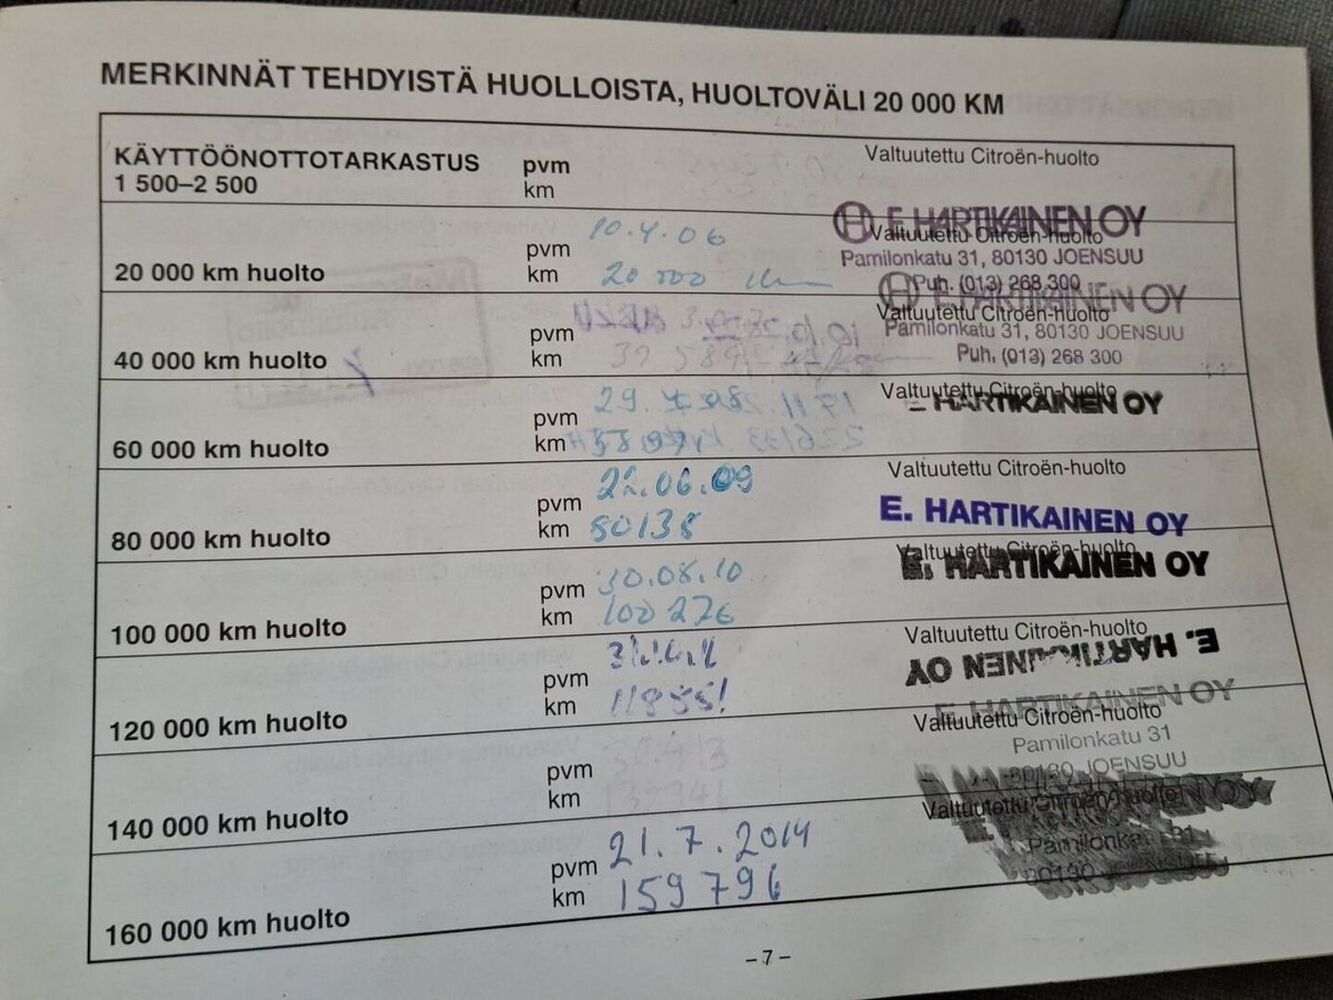 MERKINNÄT TEHDYISTÄ HUOLLOISTA, HUOLTOVÄLI 20 000 KM
KÄYTTÖÖNOTTOTARKASTUS pvm Valtuutettu Citroën-huolto
1 500–2 500 km
E. HARTIKAINEN OY
pvm 10.4.06 Valtuutettu Citroën-huolto
Pamilonkatu 31, 80130 JOENSUU
20 000 km huolto km 20 000 km
Puh. (013) 268 300
E. HARTIKAINEN OY
pvm Valtuutettu Citroën-huolto
Pamilonkatu 31, 80130 JOENSUU
40 000 km huolto km 39 589
Puh. (013) 268 300
pvm 29. Valtuutettu Citroën-huolto
HARTIKAINEN OY
60 000 km huolto km
pvm 22.06.09 Valtuutettu Citroën-huolto
80 000 km huolto km 80138
E. HARTIKAINEN OY
pvm 30.08.10 Valtuutettu Citroën-huolto
E. HARTIKAINEN OY
100 000 km huolto km 100 276
pvm Valtuutettu Citroën-huolto
E. HARTIKAINEN OY
120 000 km huolto km 118551
E. HARTIKAINEN OY
pvm Valtuutettu Citroën-huolto
Pamilonkatu 31
80130 JOENSUU
140 000 km huolto km
pvm 21.7.2014 Valtuutettu Citroën-huolto
Pamilonkatu 31
80130 JOENSUU
160 000 km huolto km 159 796
– 7 –